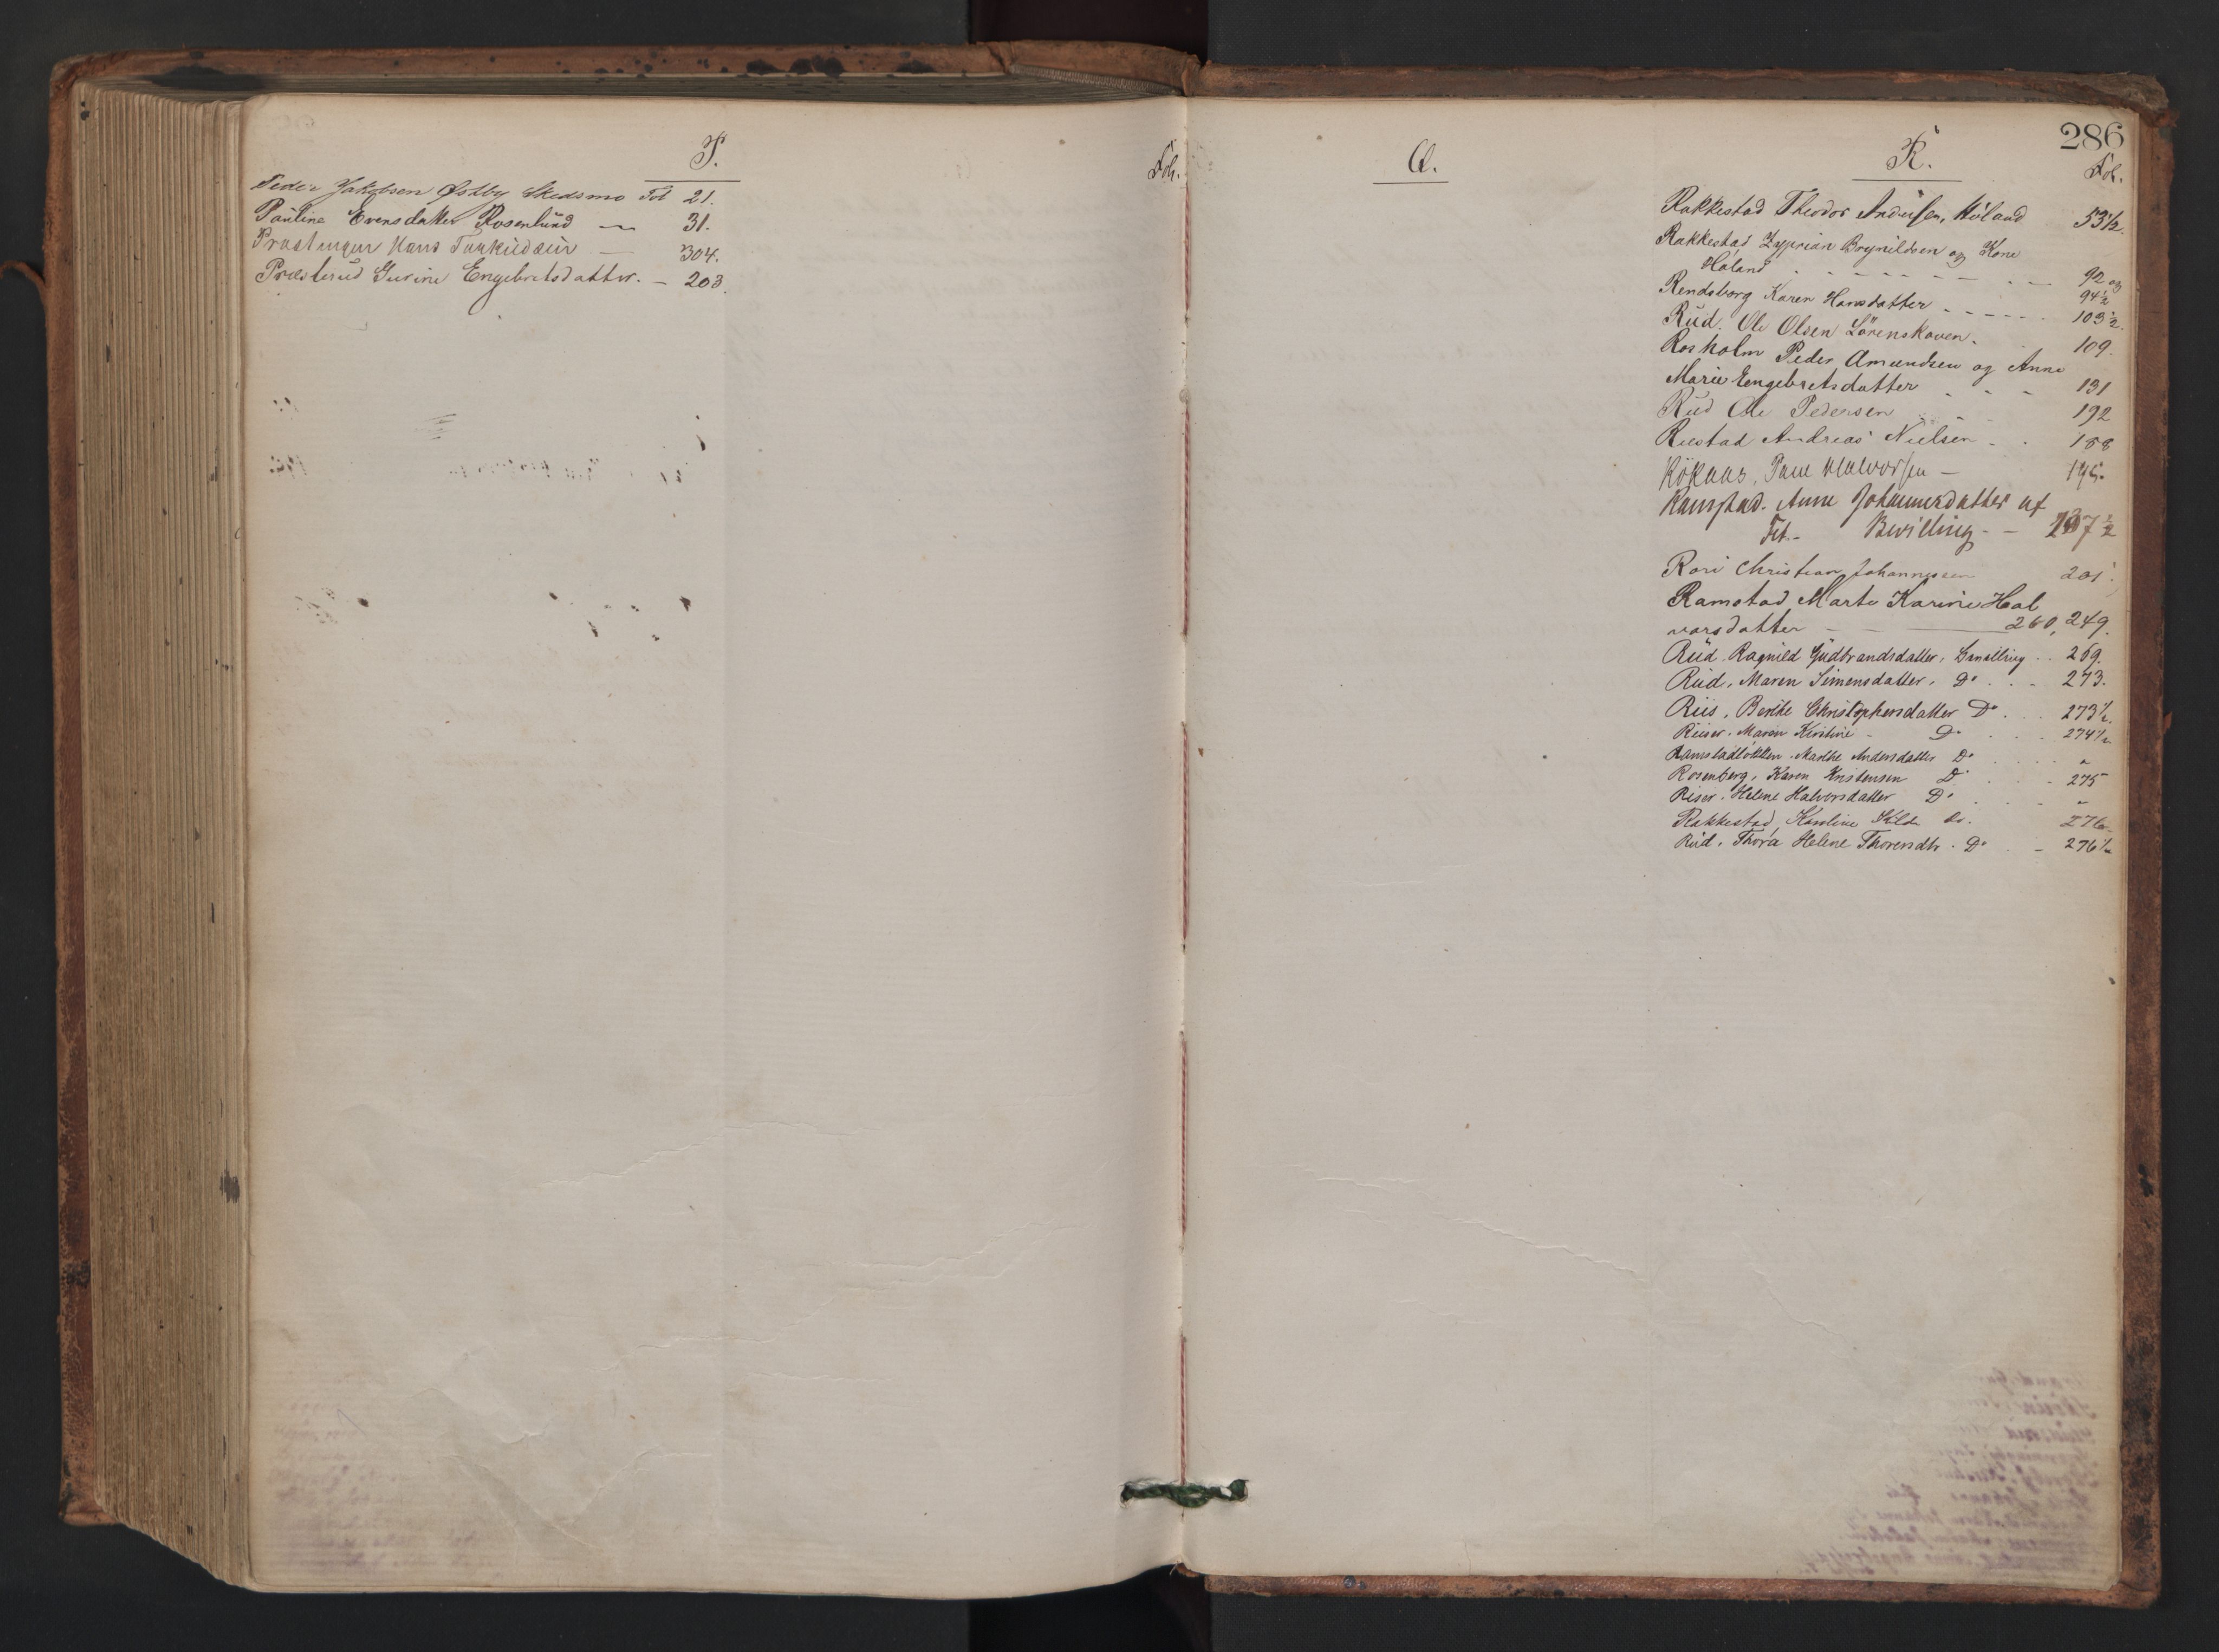 P.
Fol.
Peder Jakobsen Østby Skedsmo Fol 21.
Pauline Evensdatter Rosenlund — 31.
Hans — 304.
Præsterud Gurine Engebretsdatter. — 203.
286
Q.
R.
Fol.
Rakkestad Theodor Andersen, Høland 53½.
Rakkestad Zyprian Brynildsen og Kone
Høland 92 og
94½
Rendsborg Karen Hansdatter 103½.
Rud. Ole Olsen Lörenskoven. 109.
Rosholm Peder Amundsen og Anne
Marie Eengebretsdatter 131
Rud Ole Pedersen 192
Andreas Nielsen 188
Halvorsen — 195.
Ramstad. Anne Johannesdatter uf
Fet. - Bevilling - - 237½
Christian Johannessen 201.
Ramstad Marte Karine Hal
vorsdatter 260, 249.
Rud. Ragnild Gudbrandsdatter, 269.
Rud. Maren Simensdatter, Do 273.
Riis, Berthe Christophersdatter Do 273½.
Riiser. Maren Kirstine - Do 274½
Ramstadløkken. Marthe Andersdatter Do "
Rosenberg, Karen Kristensen Do - 275
Riser. Helene Halvorsdatter Do "
Rakkestad, Karoline do. 276
Rud. Thora Helene Thorersdtr. Do - 276½